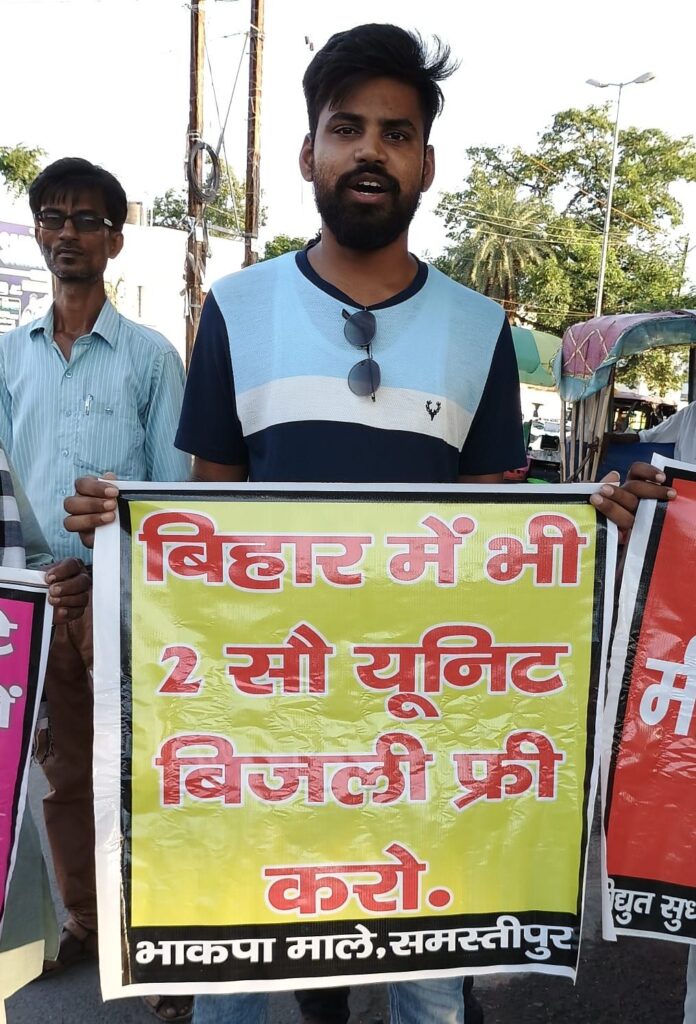 बिहार में भी
2 सौ यूनिट
बिजली फ्री
करो.
भाकपा माले,समस्तीपुर